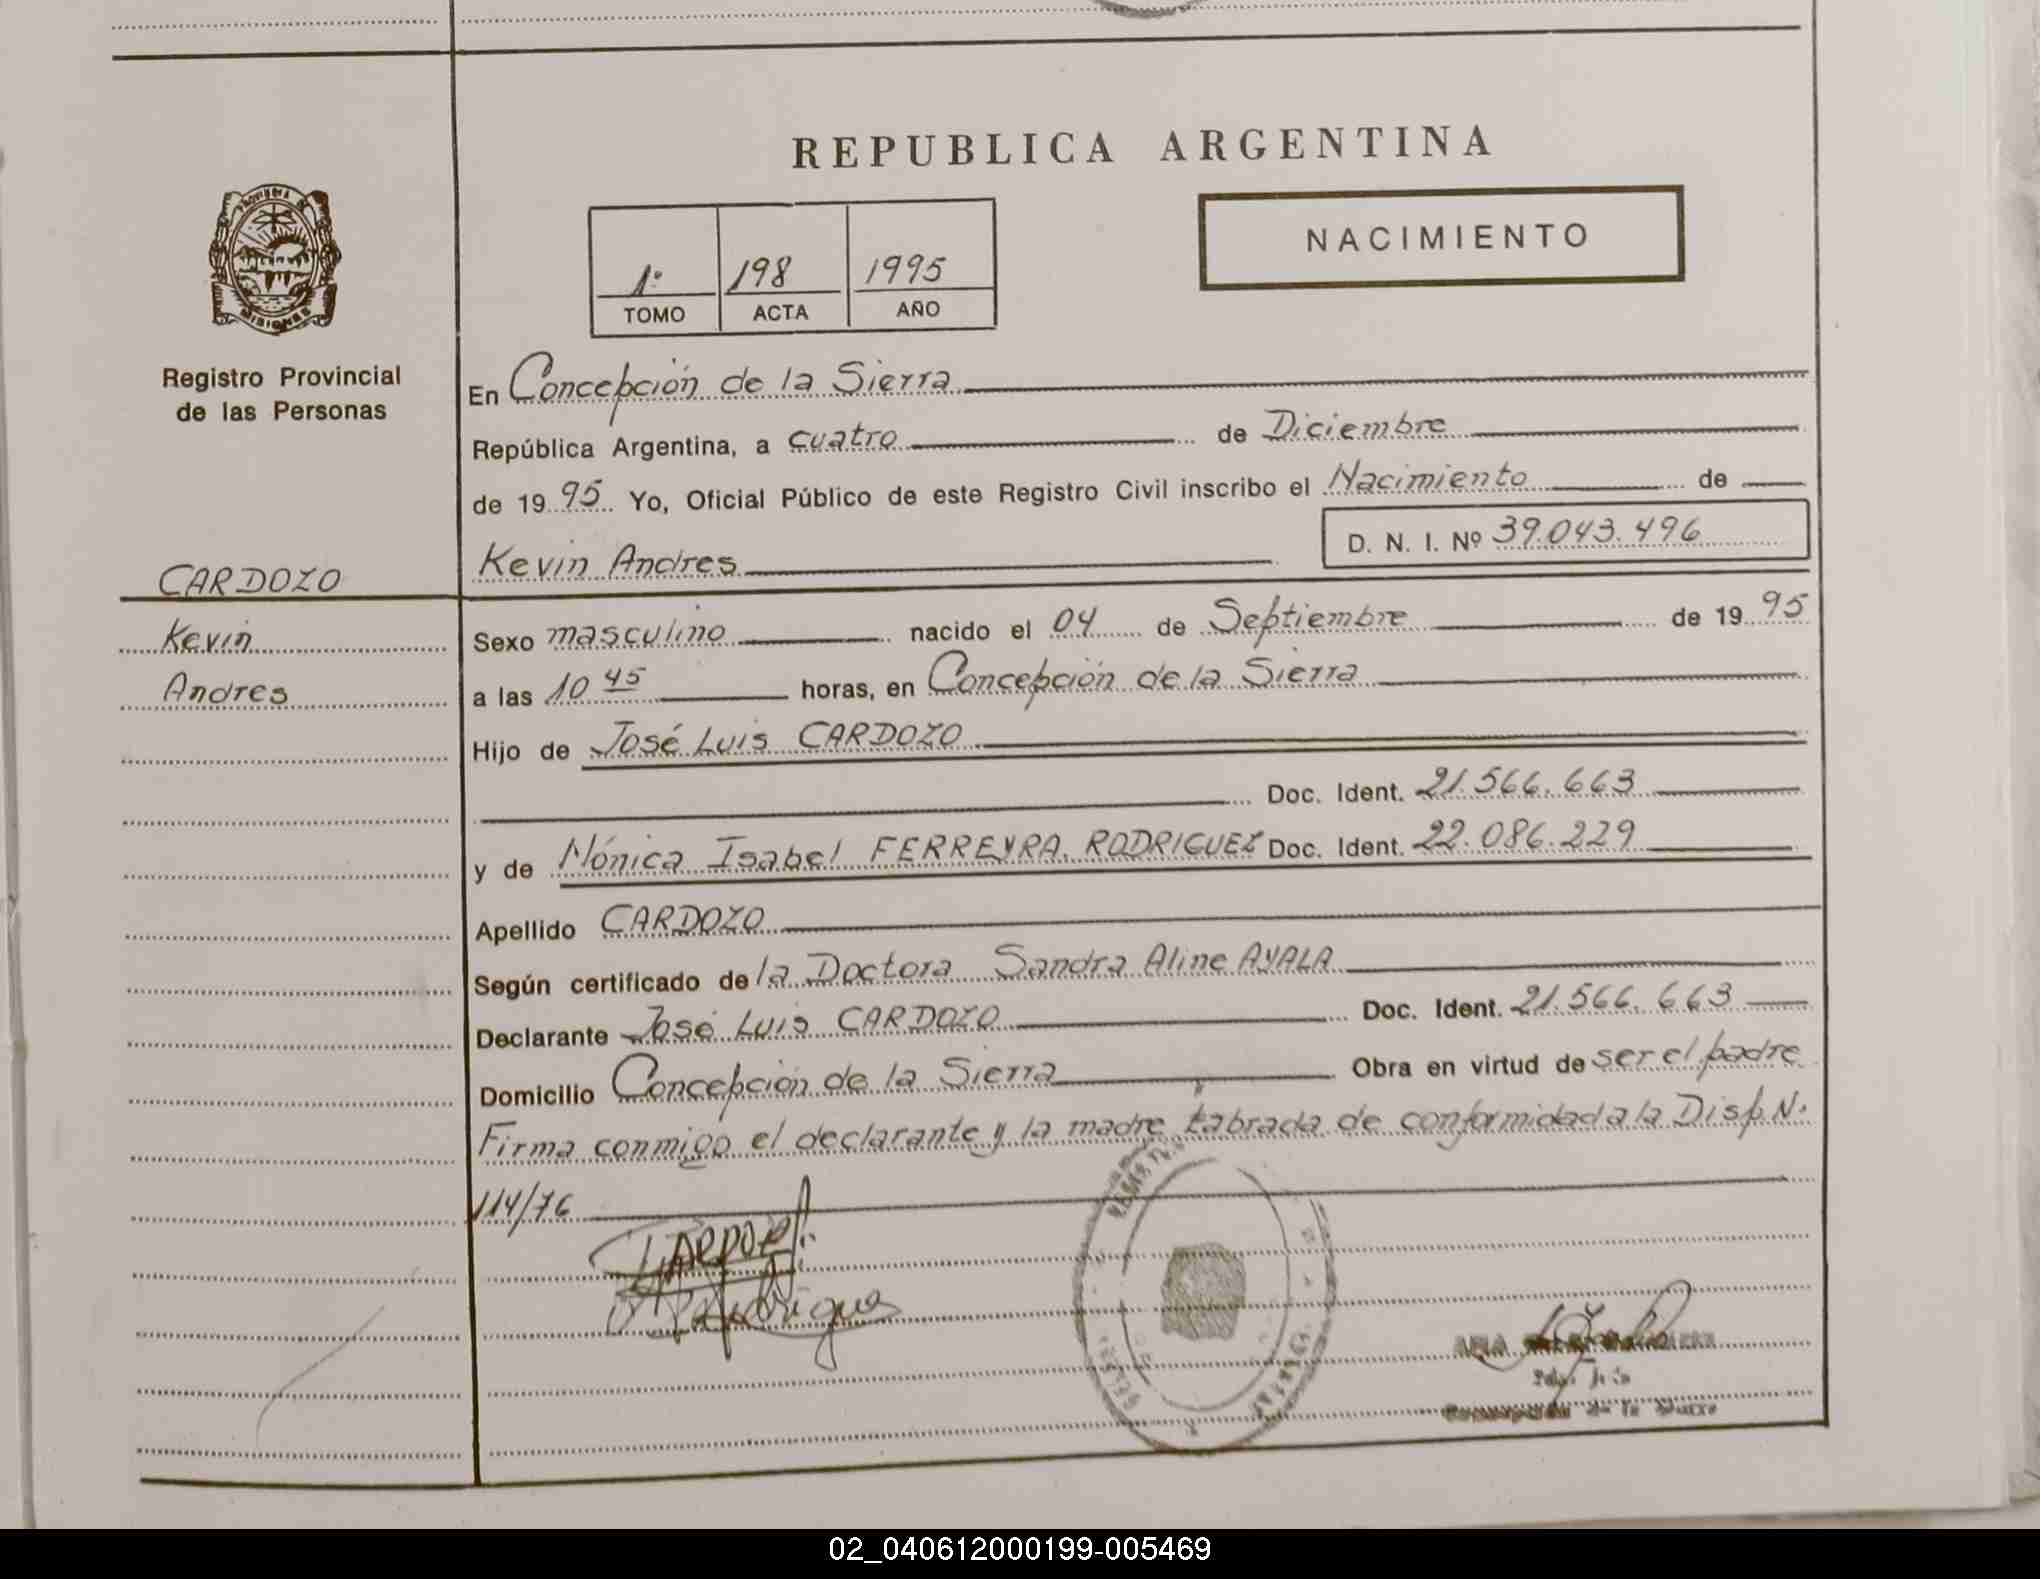 REPUBLICA ARGENTINA
PROVINCIA DE
MISIONES
Registro Provincial
de las Personas
1º 198 1995
TOMO ACTA AÑO
NACIMIENTO
En Concepción de la Sierra
República Argentina, a cuatro de Diciembre
de 1995 Yo, Oficial Público de este Registro Civil inscribo el Nacimiento de
Kevin Andres D. N. I. Nº 39.043.496
CARDOZO
Kevin
Andres
Sexo masculino nacido el 04 de Septiembre de 1995
a las 10 45 horas, en Concepción de la Sierra
Hijo de José Luis CARDOZO
Doc. Ident. 21.566.663
y de Mónica Isabel FERREYRA RODRIGUEZ Doc. Ident. 22.086.229
Apellido CARDOZO
Según certificado de la Doctora Sandra Aline AYALA
Declarante José Luis CARDOZO Doc. Ident. 21.566.663
Domicilio Concepción de la Sierra Obra en virtud de ser el padre
Firma conmigo el declarante y la madre, Labrada de conformidad a la Disp. N.
114/76
Concepción de la Sierra
02_040612000199-005469